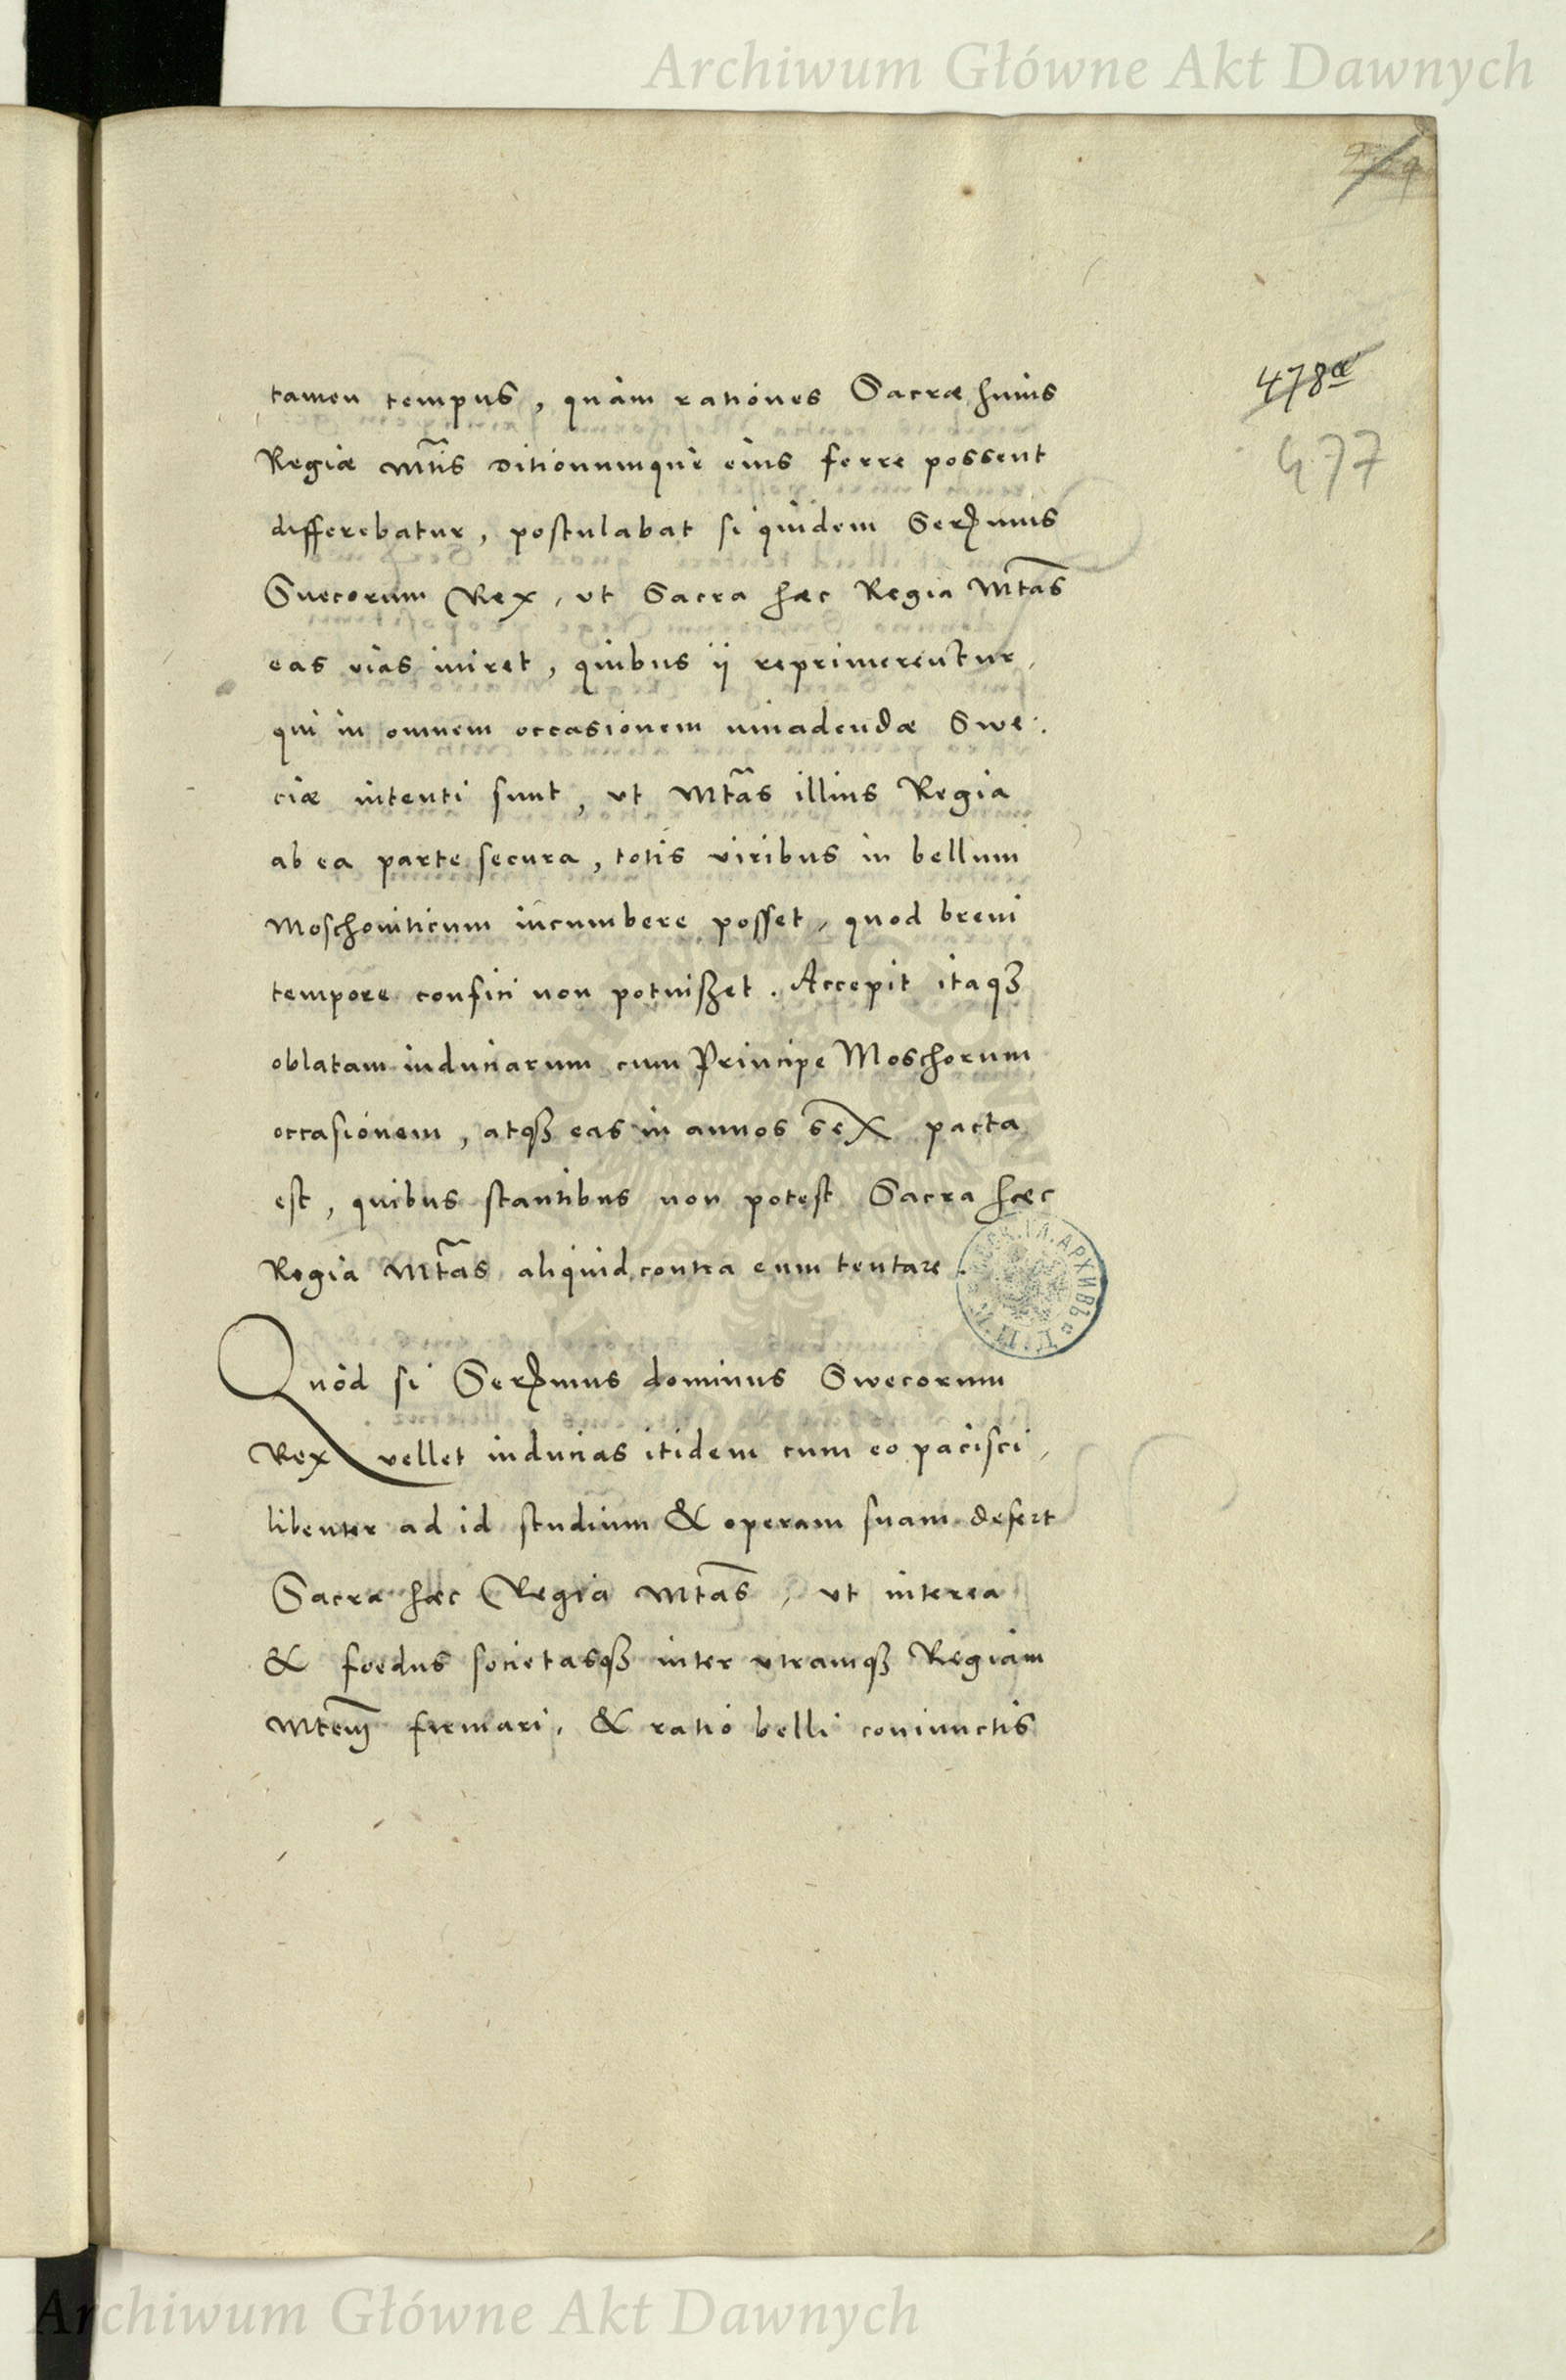 Archiwum Główne Akt Dawnych
478a
477
tamen tempus, quàm rationes Sacræ huius
Regiæ Mtis ditionumque eius ferre possent
differebatur, postulabat si quidem Serᵐᵘˢ
Suecorum Rex, vt Sacra hæc Regia Mtas
eas vias iniret, quibus ij reprimerentur,
qui in omnem occasionem inuadendæ Swe:
ciæ intenti sunt, vt Mtas illius Regia
ab ea parte secura, totis viribus in bellum
Moschouiticum incumbere posset, quod breui
tempore confici non potuißet. Accepit itaqꝫ
oblatam induciarum cum Principe Moschorum
occasionem, atqꝫ eas in annos sex pacta
est, quibus stantibus non potest Sacra hæc
Regia Mtas aliquid contra eum tentare.
Quòd si Serᵐᵘˢ dominus Swecorum
Rex vellet inducias itidem cum eo pacisci,
libenter ad id studium & operam suam defert
Sacra hæc Regia Mtas, vt interea
& foedus societasqꝫ inter vtramqꝫ Regiam
Mtem firmari, & ratio belli coniunctis
Archiwum Główne Akt Dawnych